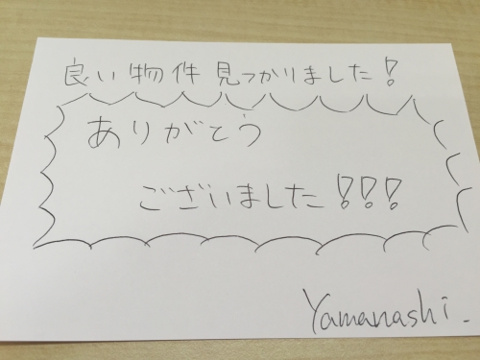 良い物件見つかりました!
ありがとう
ございました!!!
Yamanashi.